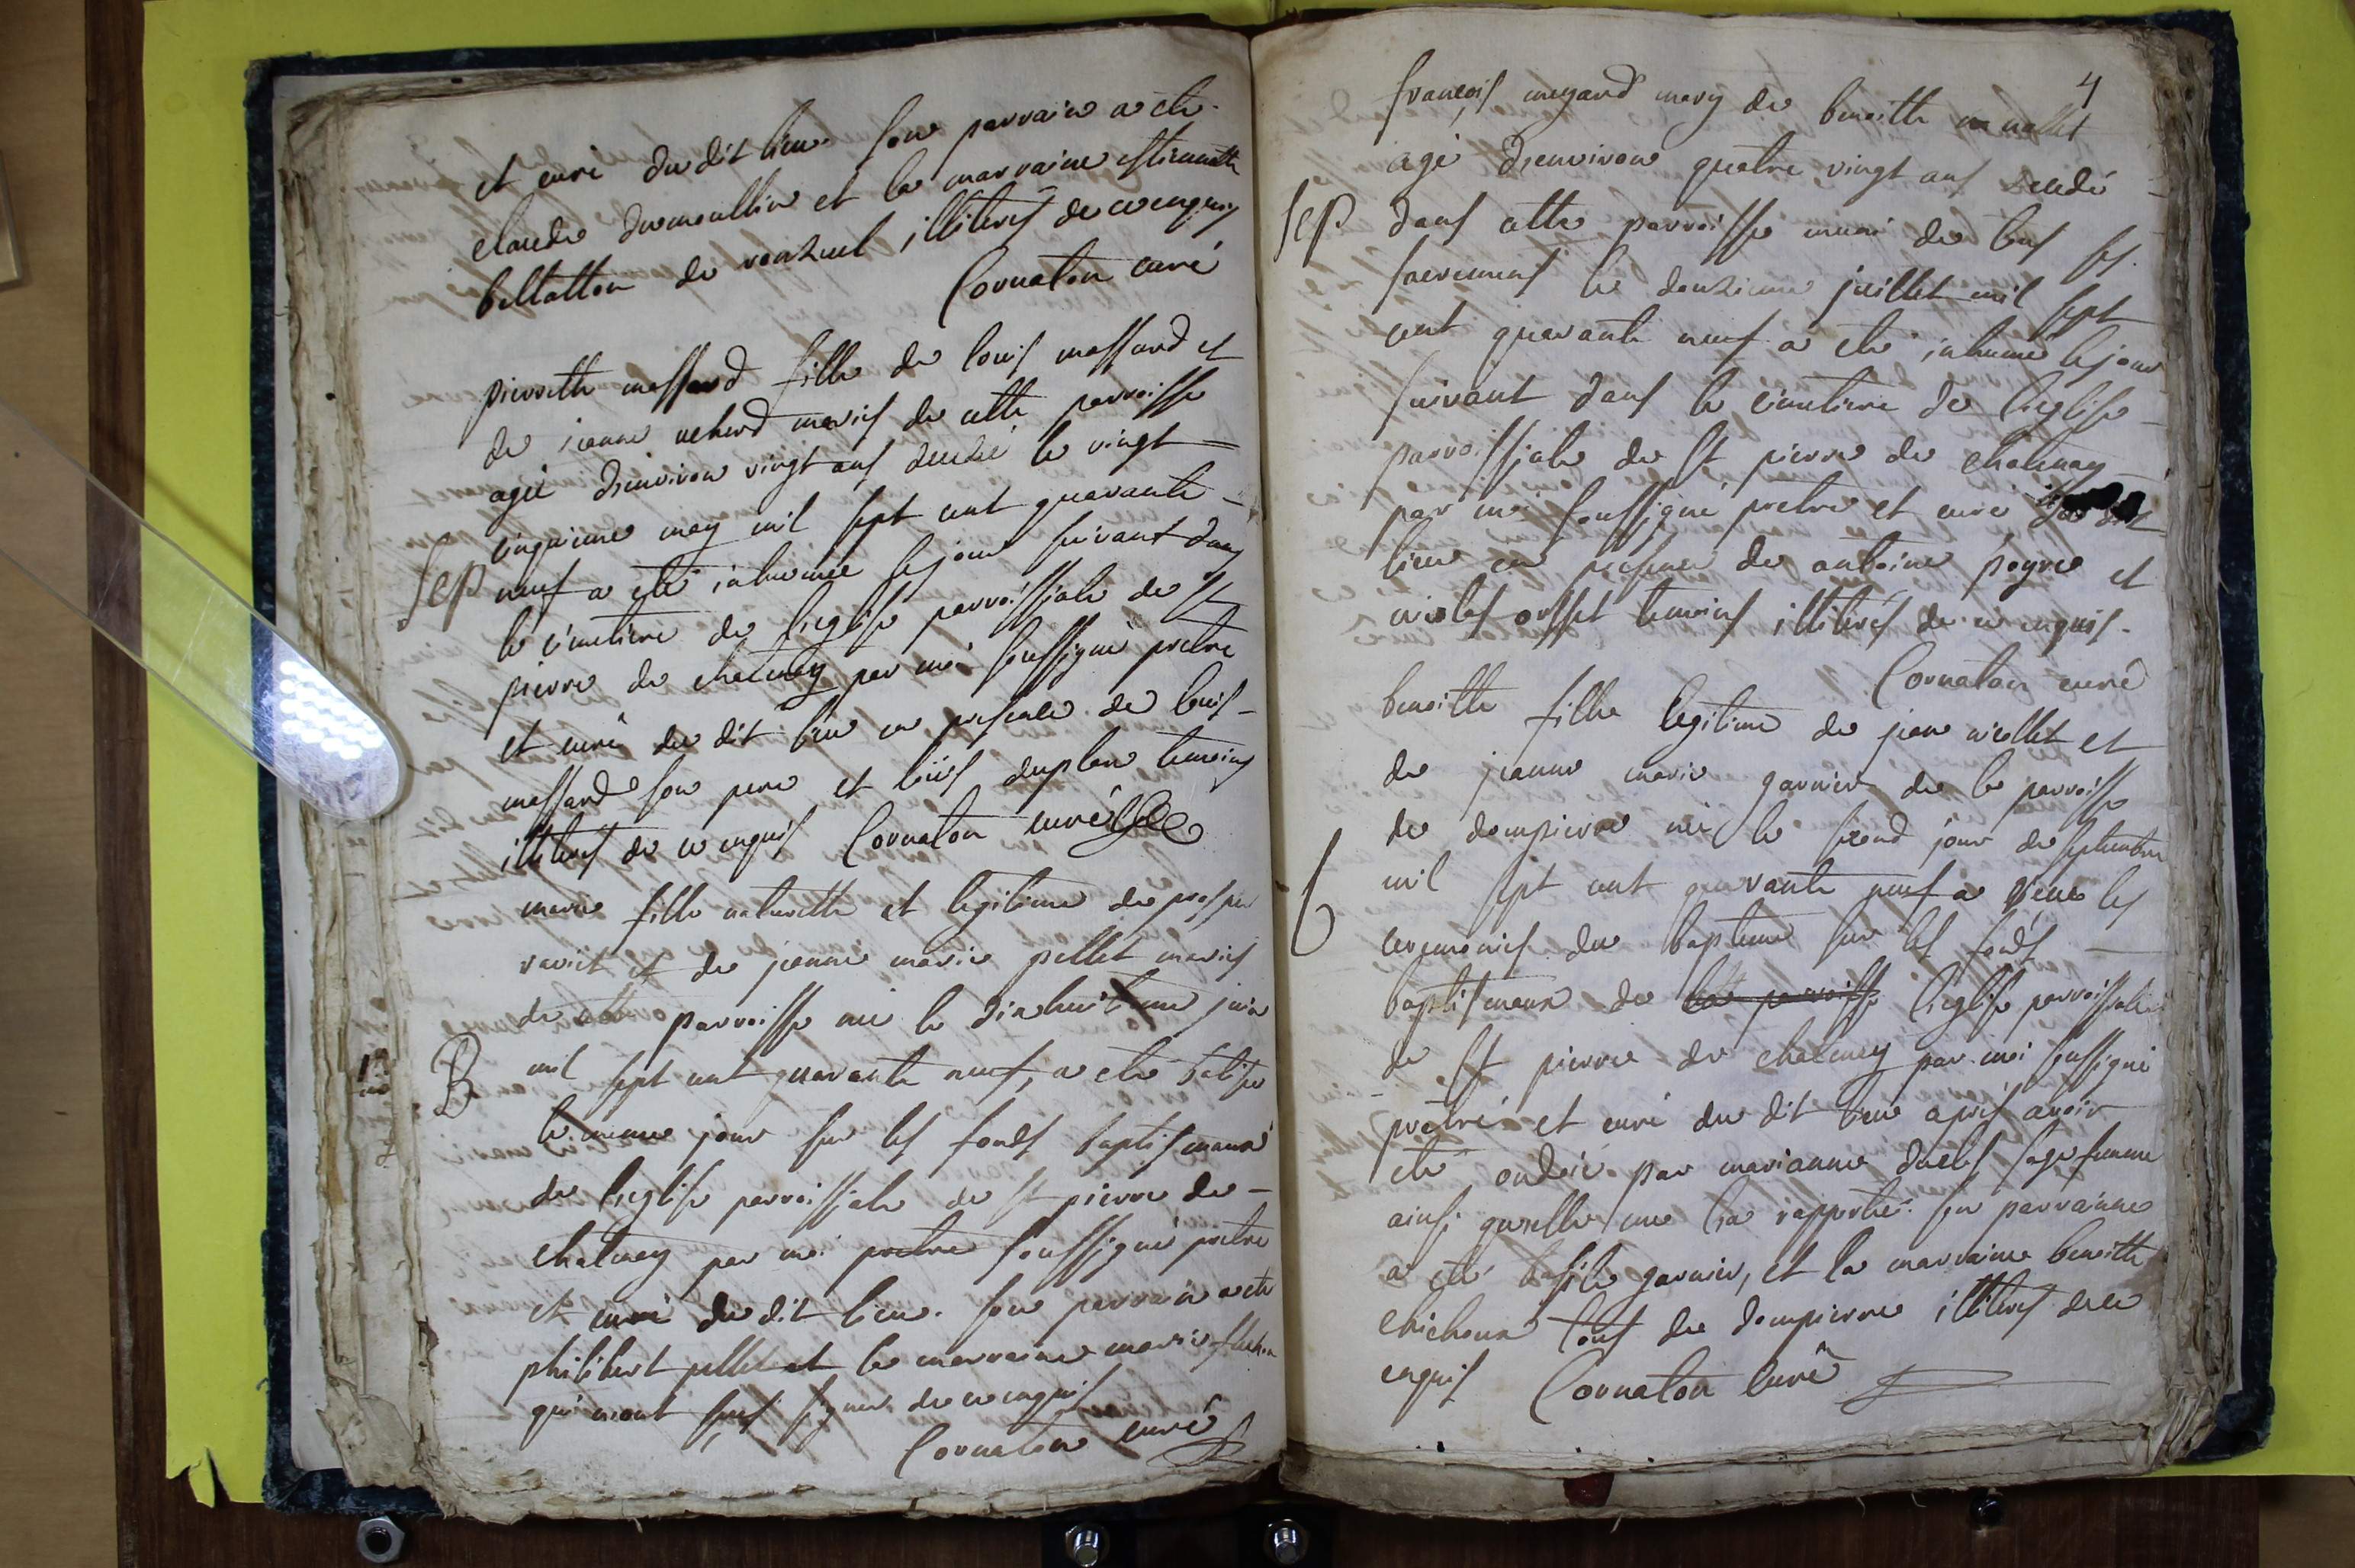 et curé du dit lieu. son parrain a eté
claude dumoullin et la marraine estiennette
bellatton de ronzuel illiterés de ce enquis
Cornaton curé
pierrette massard fille de louis massard et
de jeanne mariés de cette parroisse
agée d'environ vingt ans decedé le vingt
cinquieme may mil sept cent quarante
Sep neuf a eté inhumée le jour suivant dans
le cimetiere de l'eglise parroissiale de St
pierre de chatenay par moi soussigné pretre
et curé du dit lieu en presence de louis
massard son pere et loüis duplan temoins
illiterés de ce enquis Cornaton curé
marie fille naturelle et legitime de prosper
et de jeanne marie pellet mariés
de cette parroisse née le dixhuitieme juin
B mil sept cent quarante neuf, a eté batisée
le meme jour sur les fonds baptismaux
de l'eglise parroissiale de St pierre de
chatenay par moi pretre soussigné pretre
et curé du dit lieu. son parrain a eté
philibert pellet et la marraine marie
qui n'ont sçus signer de ce enquis
Cornaton curé
4
françois mugard mary de benoitte
agé d'environ quatre vingt ans decedé
Sep dans cette parroisse muni de tous ses
sacremens le douzieme juillet mil sept
cent quarante neuf a eté inhumé le jour
suivant dans le cimetiere de l'eglise
parroissiale de St pierre de chatenay
par moi soussigné pretre et curé du dit
lieu en presence de antoine poyre et
nicolas orsset temoins illiterés de ce enquis.
Cornaton curé
benoitte fille legitime de jean niollet et
de jeanne marie garnier de la parroisse
de dompierre née le second jour de septembre
B mil sept cent quarante neuf a reçue les
ceremonies du bapteme sur les fonds
baptismaux de la parroisse l'eglise parroissiale
de St pierre de chatenay par moi soussigné
pretre et curé du dit lieu après avoir
eté ondoiée par marianne sage femme
ainsi qu'elle me l'a rapporté. son parrainne
a eté basile garnier, et la marraine benoitte
chicheux tous de dompierre illiterés de ce
enquis Cornaton Curé